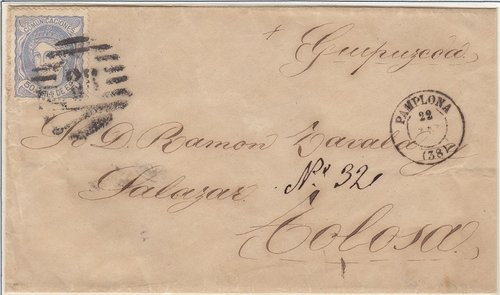 COMUNICACIONES
50 MILS DE E.
Guipuzcoa
PAMPLONA
22
(38)
Sr. D. Ramon Zavala y
Salazar.
Nº 32
Tolosa.